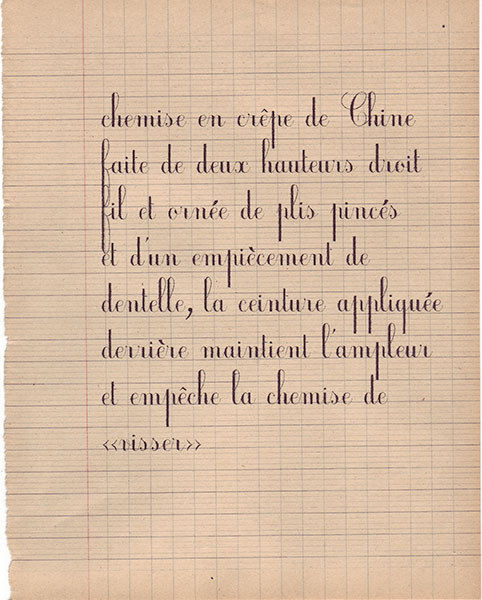 chemise en crêpe de Chine
faite de deux hauteurs droit
fil et ornée de plis pincés
et d'un empiècement de
dentelle, la ceinture appliquée
derrière maintient l'ampleur
et empêche la chemise de
«visser»